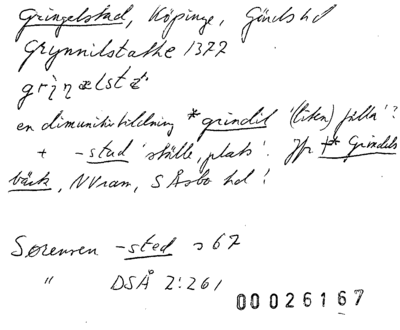 Gringelstad, Köpinge, Gärds hd
Grynnilstathe 1377
griŋælsta
en diminutivbildning *grindil '(liten) fålla'?
+ -stad 'ställe, plats'. Jfr †* Grindels
bäck, NVram, S Åsbo hd!
Sørensen -sted s 67
" DSÅ 2:261
00026167